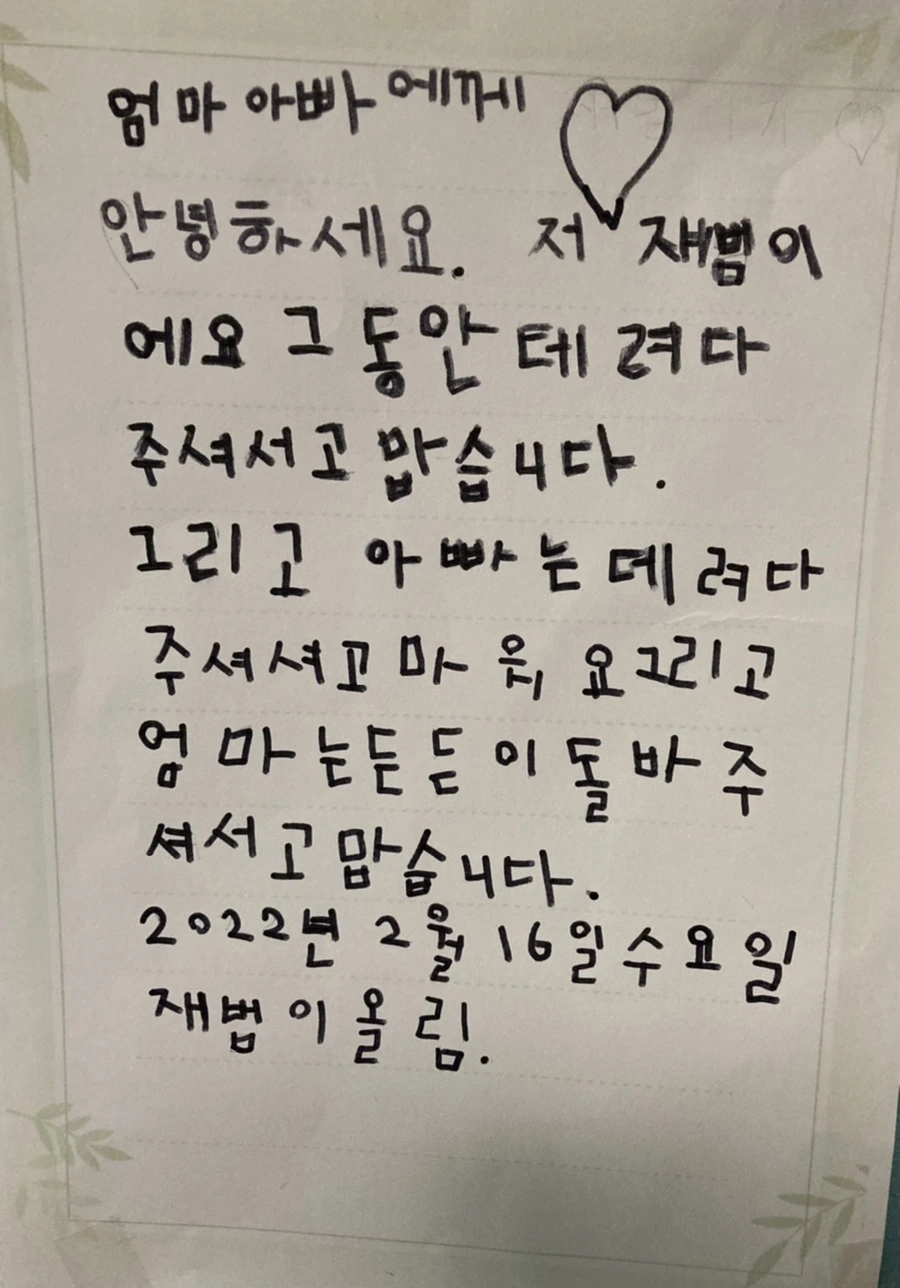 엄마 아빠 에께
안녕하세요. 저 재범이
에요 그 동안 데 려다
주셔서고 맙습니다.
그리고 아빠는 데 려다
주셔셔고 마 워 요그리고
엄 마는든든 이 돌 바 주
셔서고맙습니다.
2022년 2월 16일수요일
재범이올림.